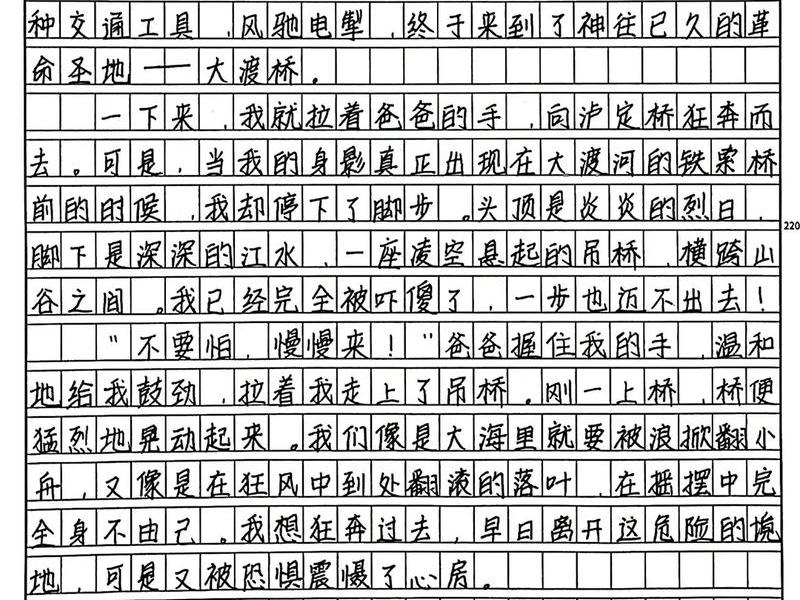 种交通工具,风驰电掣,终于来到了神往已久的革
命圣地——大渡桥。
一下来,我就拉着爸爸的手,向泸定桥狂奔而
去。可是,当我的身影真正出现在大渡河的铁索桥
前的时候,我却停下了脚步。头顶是炎炎的烈日,
220
脚下是深深的江水,一座凌空悬起的吊桥,横跨山
谷之间。我已经完全被吓傻了,一步也迈不出去!
"不要怕,慢慢来!"爸爸握住我的手,温和
地给我鼓劲,拉着我走上了吊桥。刚一上桥,桥便
猛烈地晃动起来。我们像是大海里就要被浪掀翻小
舟,又像是在狂风中到处翻滚的落叶,在摇摆中完
全身不由己。我想狂奔过去,早日离开这危险的境
地,可是又被恐惧震慑了心房。